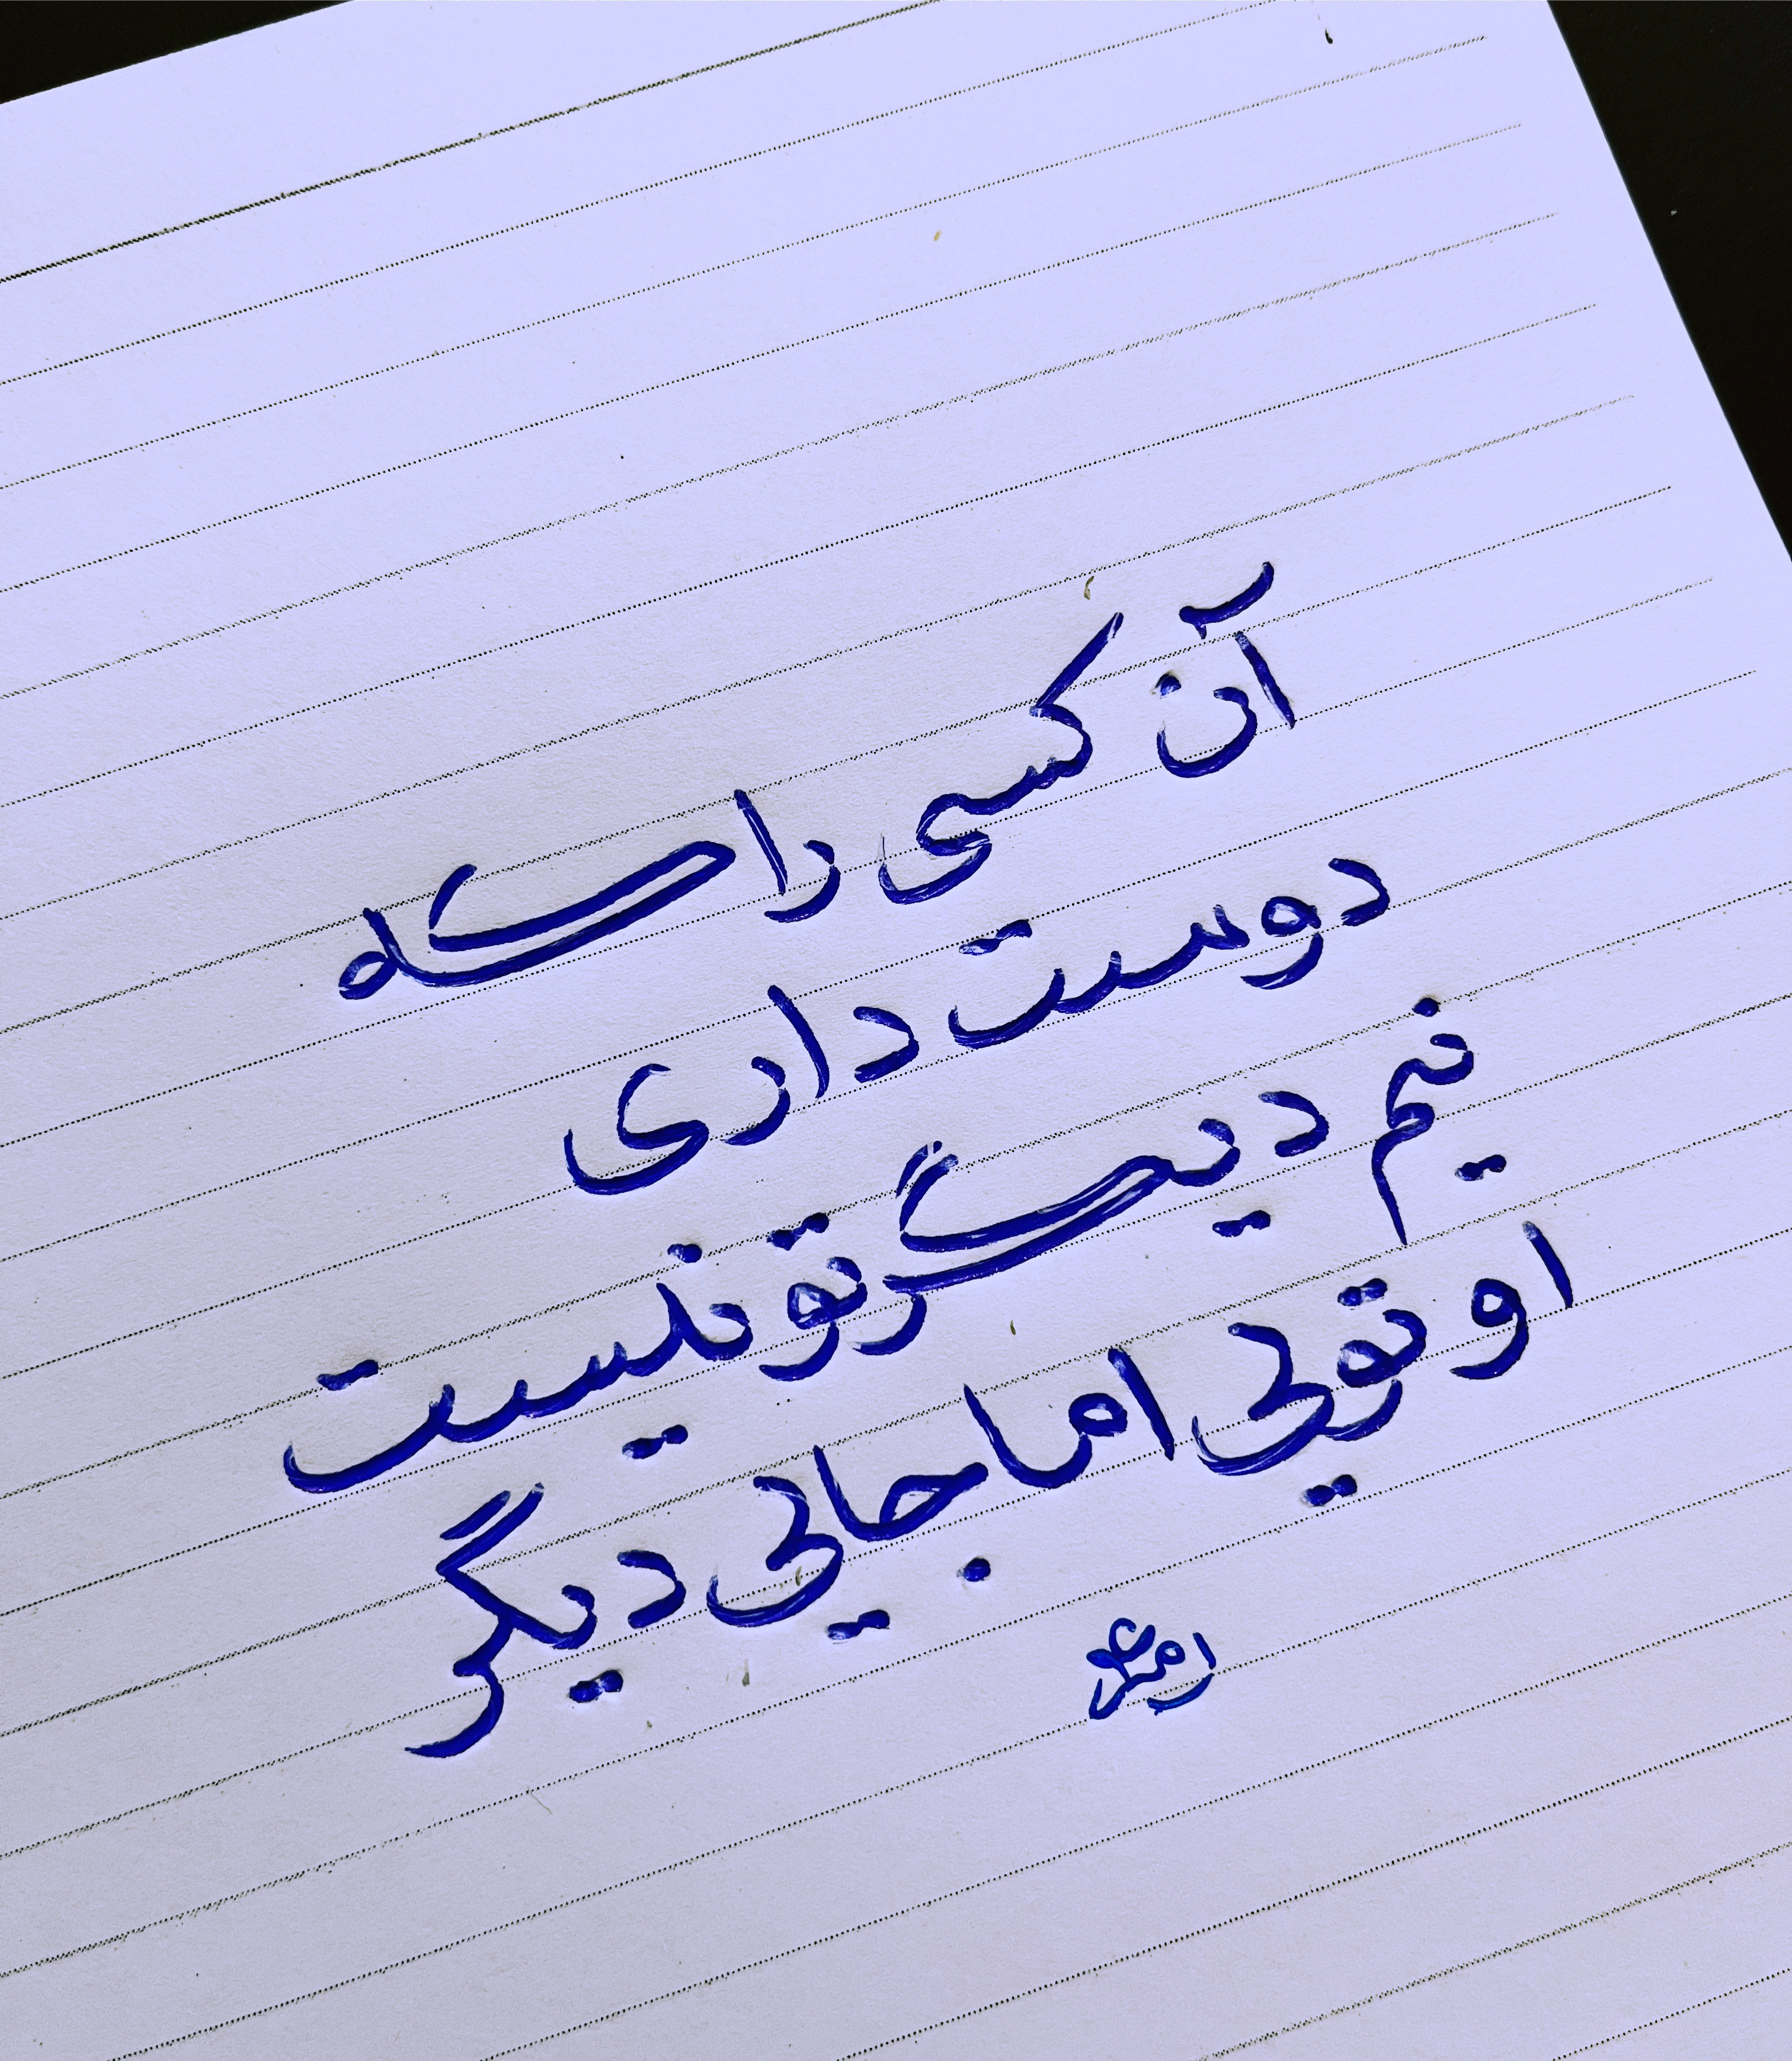 آن کسی را که
دوست داری
نیم دیگر تو نیست
او تویی اما جایی دیگر